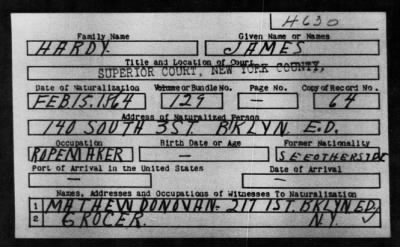 H630
Family Name Given Name or Names
HARDY. JAMES
Title and Location of Court
SUPERIOR COURT, NEW YORK COUNTY.
Date of Naturalization Volume or Bundle No. Page No. Copy of Record No.
FEB 15. 1864 129 — 64
Address of Naturalized Person
140 SOUTH 3 ST. BKLYN. E.D.
Occupation Birth Date or Age Former Nationality
ROPEMAKER — SEE OTHER SIDE
Port of Arrival in the United States Date of Arrival
— —
Names, Addresses and Occupations of Witnesses To Naturalization
1 MATHEW DONOVAN. 217 1 ST. BKLYN E.D.
2 GROCER N.Y.